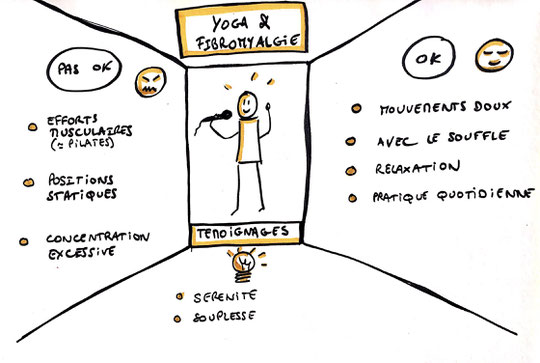 YOGA &
FIBROMYALGIE
PAS OK
EFFORTS
MUSCULAIRES
(= PILATES)
POSITIONS
STATIQUES
CONCENTRATION
EXCESSIVE
OK
MOUVEMENTS DOUX
AVEC LE SOUFFLE
RELAXATION
PRATIQUE QUOTIDIENNE
TEMOIGNAGES
SERENITE
SOUPLESSE